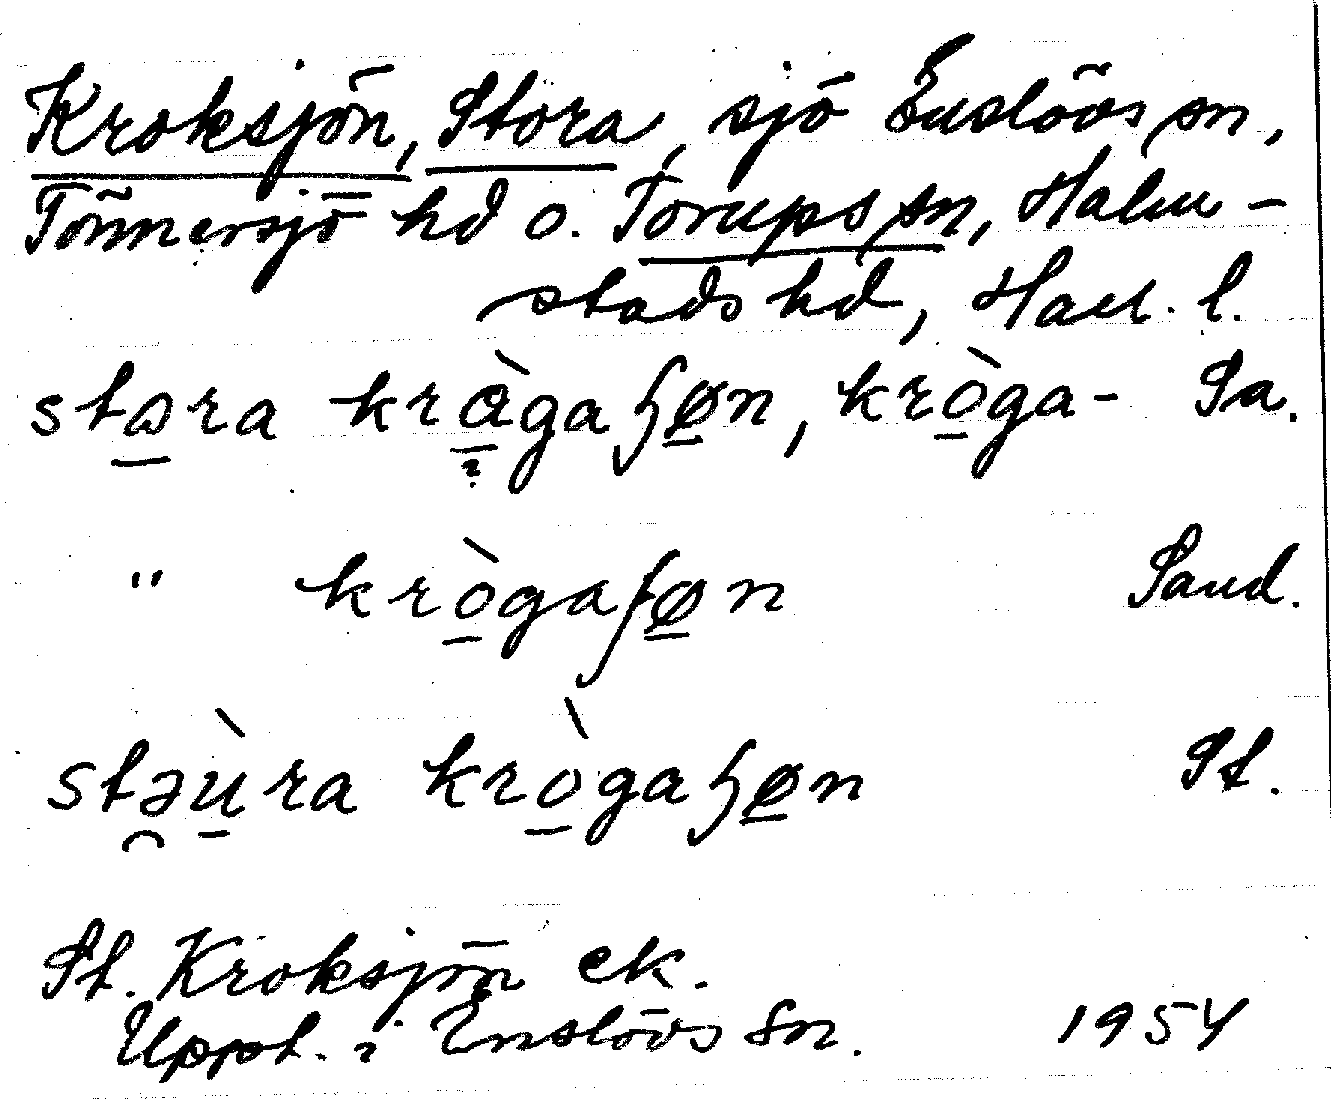 Kroksjön, Stora, sjö Enslövs sn,
Tönnersjö hd o. Torups sn, Halm-
stads hd, Hall. l.
stɷra krɑ̀gaɧøn, kròga- Sa.
" krògaʃøn Sand.
stəùra krògaɧøn St.
St. Kroksjön ek.
Uppt. i Enslövs sn. 1954